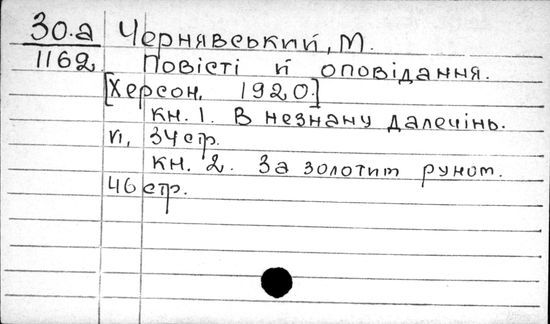 30.а Чернявський, М.
1162 Повісті й оповідання.
[Херсон, 1920.]
кн. 1. В незнану далечінь.
VI, 34 стр.
кн. 2. За золотим руном.
46 стр.